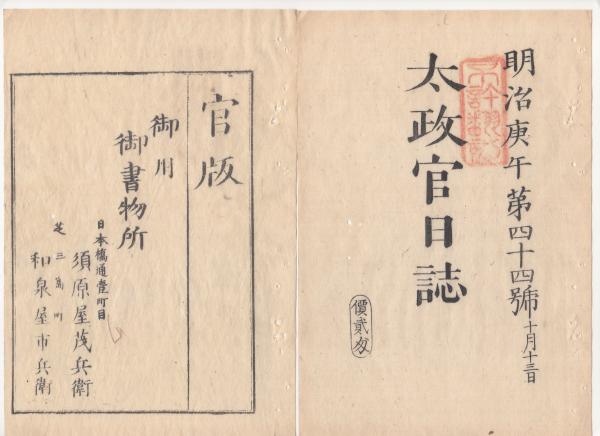 明治庚午第四十四號 十月十三日
太政官日誌
價貳匁
官版
御用
御書物所
日本橋通壹町目
須原屋茂兵衛
芝三島町
和泉屋市兵衛